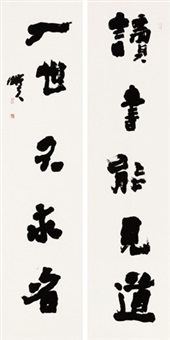 讀書能見道
入世不求名